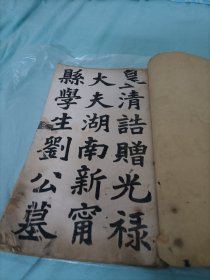 皇清誥贈光禄
大夫湖南新甯
縣學生劉公墓